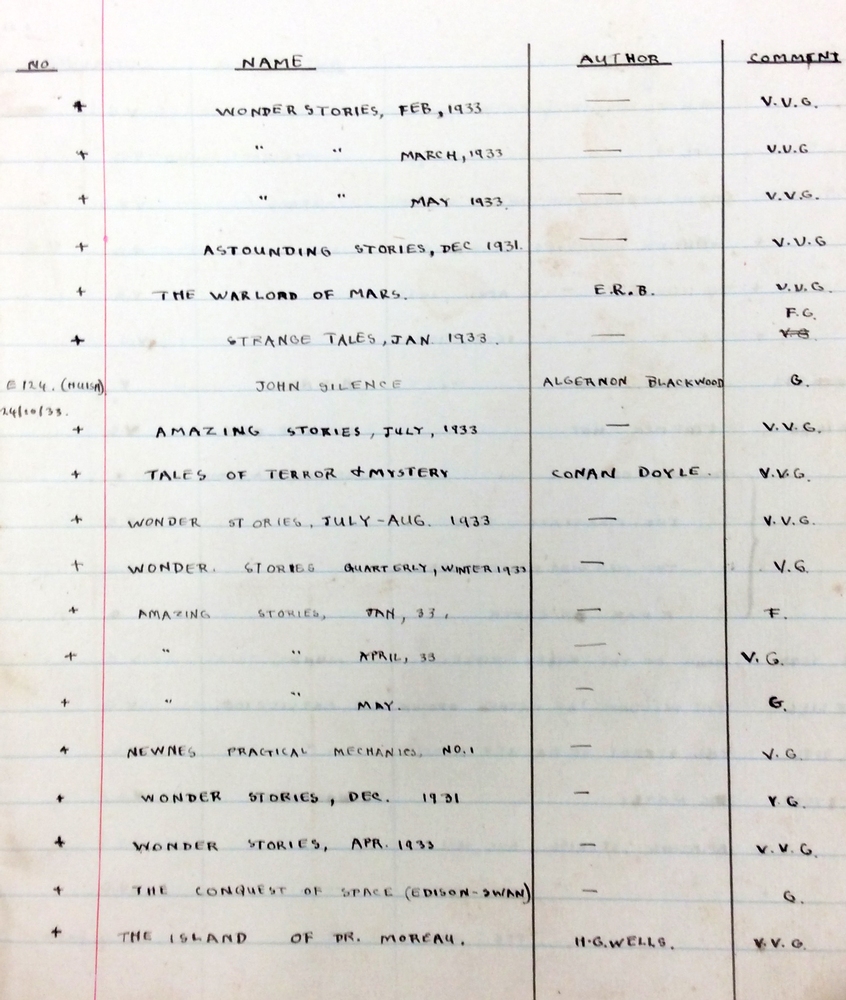 NO. NAME AUTHOR COMMENT
+ WONDER STORIES, FEB, 1933 — V.V.G.
+ " " MARCH, 1933 — V.V.G
+ " " MAY 1933. — V.V.G.
+ ASTOUNDING STORIES, DEC 1931. — V.V.G
+ THE WARLORD OF MARS. E.R.B. V.V.G.
F.G.
+ STRANGE TALES, JAN. 1933. — V.G.
E124. (HUISH) JOHN SILENCE ALGERNON BLACKWOOD G.
24/10/33.
+ AMAZING STORIES, JULY, 1933 — V.V.G.
+ TALES OF TERROR & MYSTERY CONAN DOYLE. V.V.G.
+ WONDER STORIES, JULY-AUG. 1933 — V.V.G.
+ WONDER. STORIES QUARTERLY, WINTER 1933 — V.G.
+ AMAZING STORIES, JAN, 33. — F.
+ " " APRIL, 33 — V.G.
+ " " MAY. — G.
+ NEWNES PRACTICAL MECHANICS, NO.1 — V.G.
+ WONDER STORIES, DEC. 1931 — V.G.
+ WONDER STORIES, APR. 1933 — V.V.G.
+ THE CONQUEST OF SPACE (EDISON-SWAN) — G.
+ THE ISLAND OF DR. MOREAU. H.G.WELLS. V.V.G.